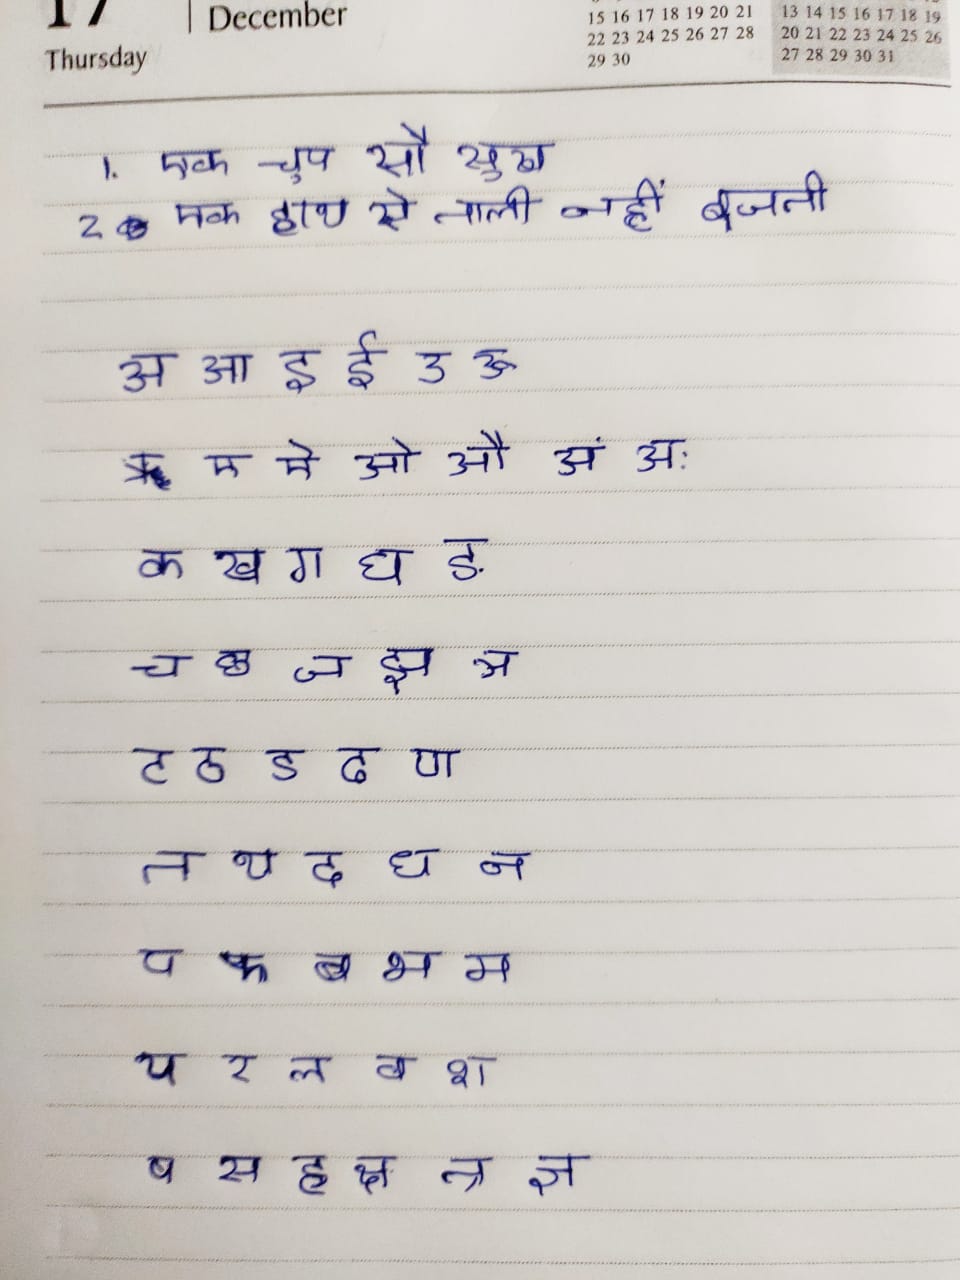 17 | December
Thursday
15 16 17 18 19 20 21 13 14 15 16 17 18 19
22 23 24 25 26 27 28 20 21 22 23 24 25 26
29 30 27 28 29 30 31
1. एक चुप सौ सुख
2 एक हाथ से ताली नहीं बजती
अ आ इ ई उ ऊ
ऋ ए ऐ ओ औ अं अः
क ख ग घ ङ
च छ ज झ ञ
ट ठ ड ढ ण
त थ द ध न
प फ ब भ म
य र ल व श
ष स ह क्ष त्र ज्ञ